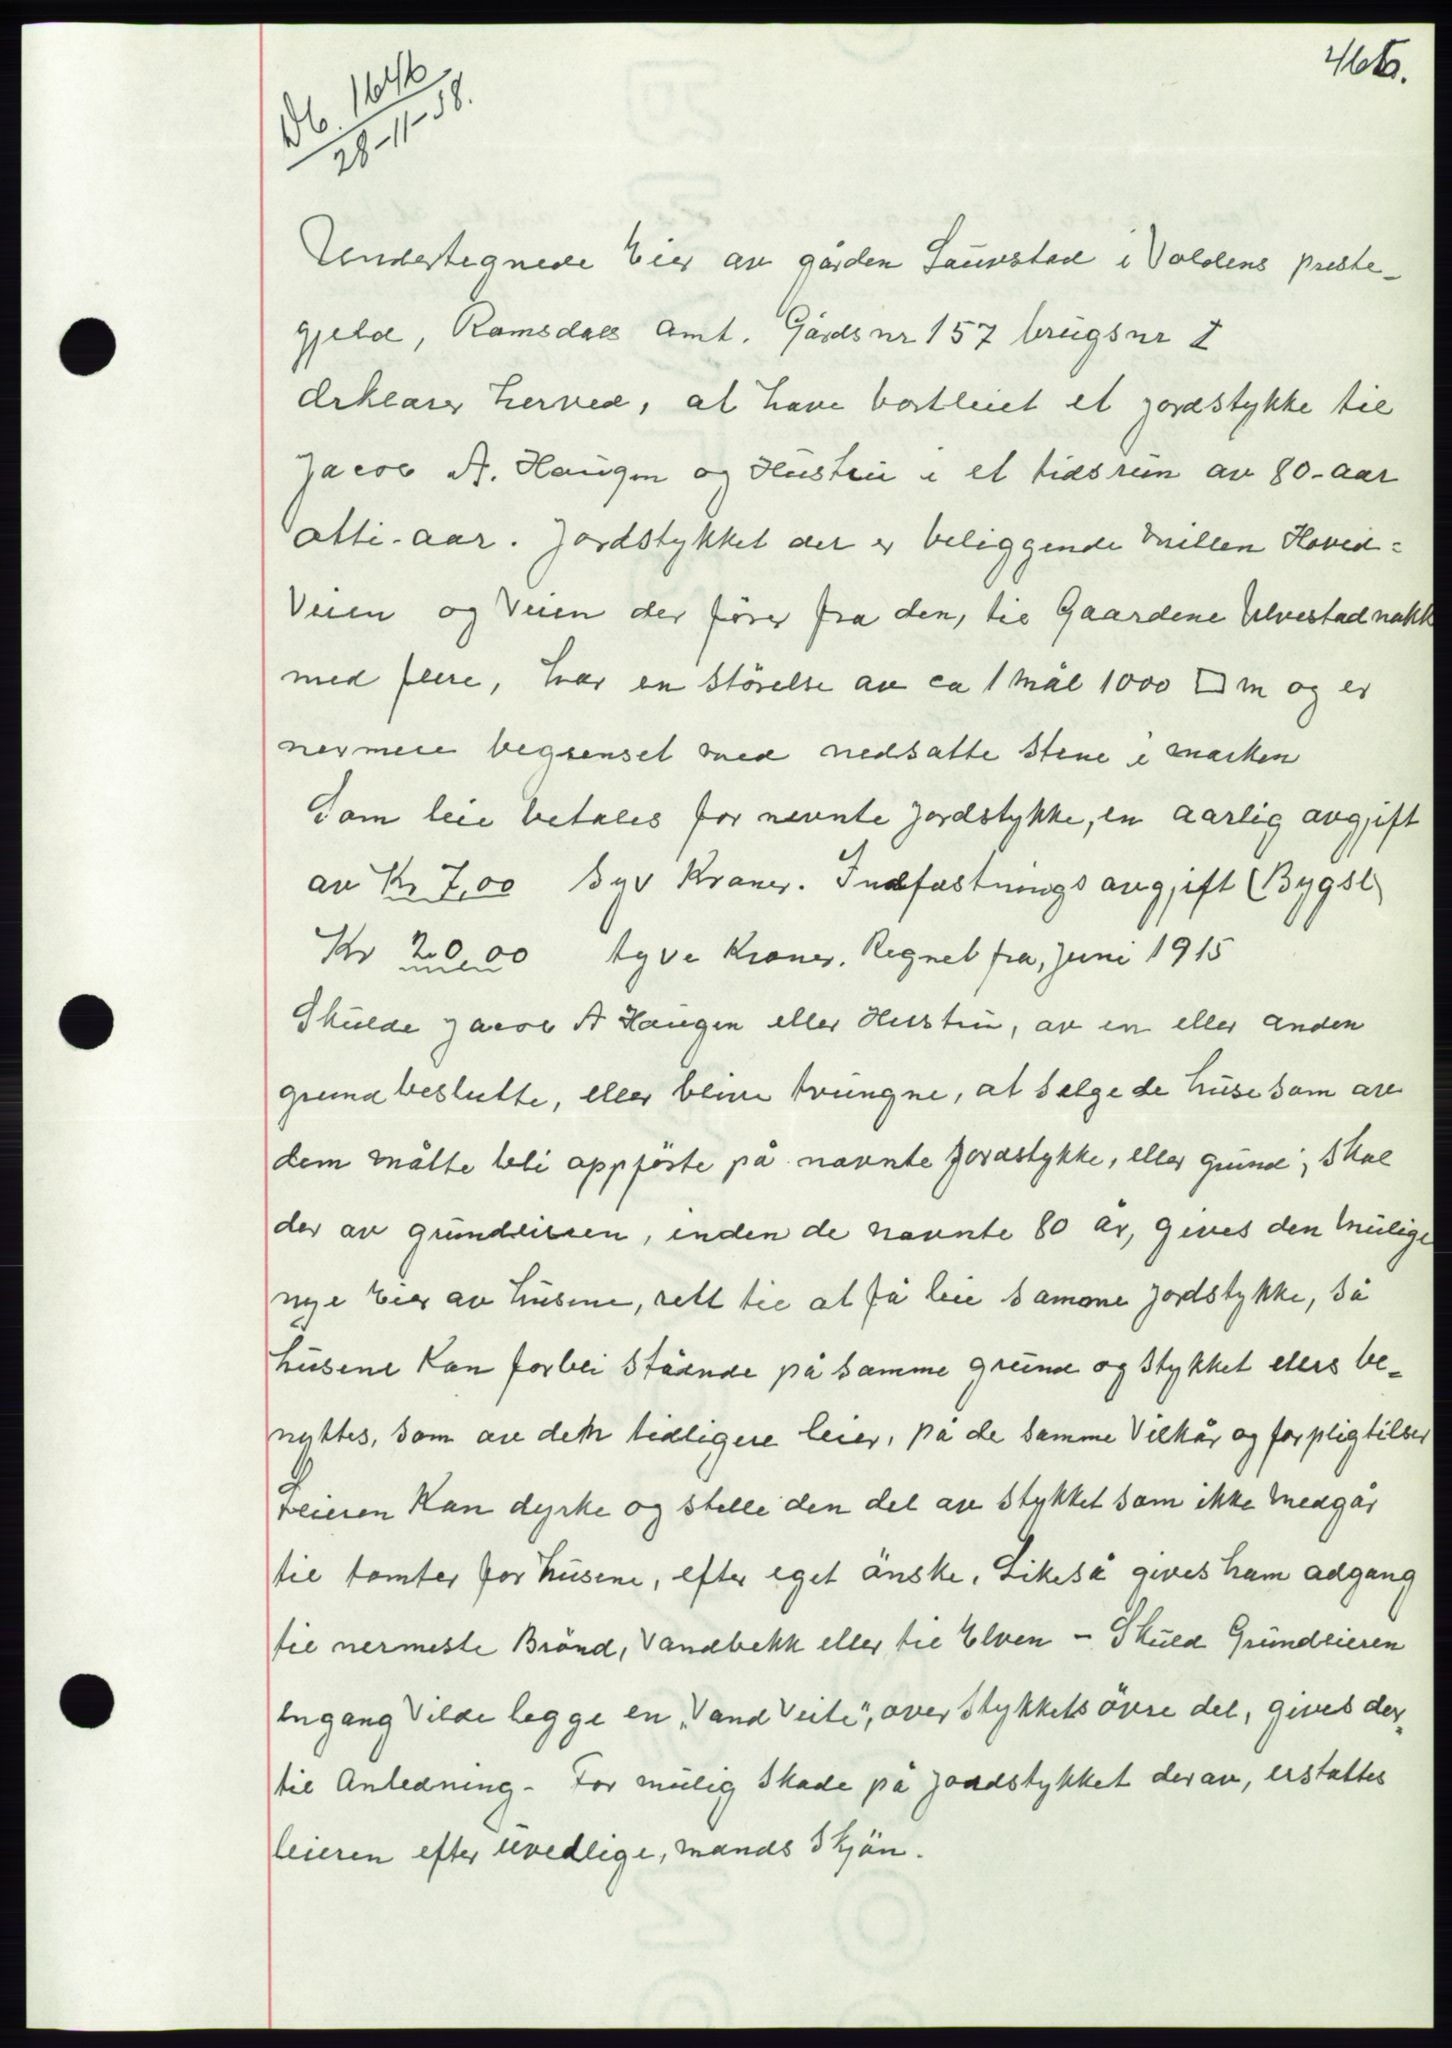 466.
Db. 1646
28-11-38.
Undertegnede Eier av gården Saurstad i Voldens preste-
gjeld, Romsdals amt. Gårdsnr 157 brugsnr 1
erklærer herved, at have bortleiet et jordstykke til
Jacob A. Haugen og Hustru i et tidsrum av 80-aar
otti-aar. Jordstykket der er beliggende mellem Hoved=
Veien og Veien der fører fra den, til Gaardene Ulvestad nakk
med flere, har en störelse av ca 1 mål 1000 □ m og er
nermere begrenset med nedsatte stene i marken
Som leie betales for nevnte jordstykke, en aarlig avgift
av Kr 7,00 Syv Kroner. Indfæstningsavgift (Bygsl)
Kr 20,00 tyve Kroner. Regnet fra, juni 1915
Skulde Jacob A Haugen eller Hustru, av en eller anden
grund beslutte, eller blive tvungne, at selge de huse som av
dem måtte bli oppförte på nævnte Jordstykke, eller grund, skal
der av grundeieren, inden de nævnte 80 år, gives den mulige
nye Eier av husene, rett til at få leie samme jordstykke, så
husene Kan forbli stående på samme grund og stykket ellers be-
nyttes, som av den tidligere leier, på de samme Vilkår og forpligtilser
Leieren Kan dyrke og stelle den del av stykket som ikke medgår
til tomter for husene, efter eget önske. Likeså gives ham adgang
til nermeste Brönd, Vandbekk eller til Elven - Skuld Grundeieren
engang Vilde legge en "Vand Veite", over Stykkets övre del, gives der-
til Anledning - For mulig Skade på jordstykket derav, erstattes
leieren efter uvedlige, mands Skjön.